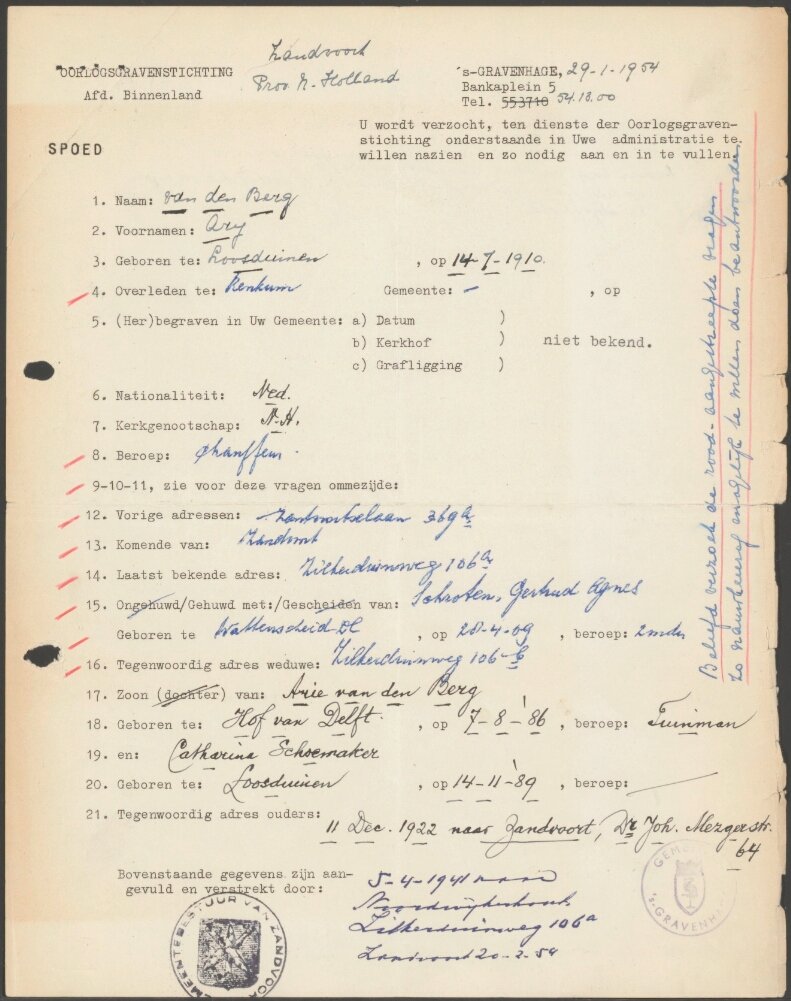 Zandvoort
Prov N. Holland
OORLOGSGRAVENSTICHTING
Afd. Binnenland
's-GRAVENHAGE, 29-1-1954
Bankaplein 5
Tel. 553710 54.18.00
U wordt verzocht, ten dienste der Oorlogsgraven-
stichting onderstaande in Uwe administratie te
willen nazien en zo nodig aan en in te vullen.
SPOED
1. Naam: van den Berg
2. Voornamen: Ary
3. Geboren te: Loosduinen , op 14-7-1910.
4. Overleden te: Renkum Gemeente: - , op
5. (Her)begraven in Uw Gemeente: a) Datum )
b) Kerkhof ) niet bekend.
c) Grafligging )
6. Nationaliteit: Ned.
7. Kerkgenootschap: N.H.
8. Beroep: chauffeur.
9-10-11, zie voor deze vragen ommezijde:
12. Vorige adressen: 369a
13. Komende van: Zandvoort
14. Laatst bekende adres: Zilkerduinweg 106a
15. Ongehuwd/Gehuwd met:/Gescheiden van: Schroten, Gertrud Agnes
Geboren te Wattenscheid Dl , op 28-4-09 , beroep: zonder
16. Tegenwoordig adres weduwe: Zilkerduinweg 106-
17. Zoon (dochter) van: Arie van den Berg
18. Geboren te: Hof van Delft. , op 7-8-'86 , beroep: Tuinman
19. en: Catharina Schoemaker
20. Geboren te: Loosduinen , op 14-11-'89 , beroep:
21. Tegenwoordig adres ouders:
11 Dec. 1922 naar Zandvoort, Dr Joh. Mezgerstr.
64
Bovenstaande gegevens zijn aan-
gevuld en verstrekt door:
5-4-1941 naar
Noordwijkerhout
Zilkerduinweg 106a
Zandvoort 20-2-54
GEMEENTEBESTUUR VAN ZANDVOORT
GEMEENTE
'S-GRAVENHAGE
Beleefd verzoek de rood-aangestreepte vragen
zo nauwkeurig mogelijk te willen doen beantwoorden